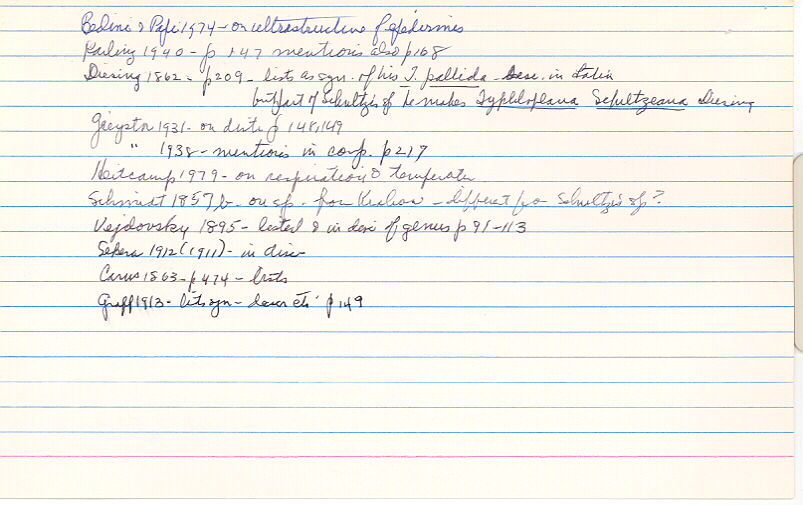 Bedini & Papi 1974 - on ultrastructure of epidermis
Karling 1940 - p 147 mentions also p 168
Diesing 1862 - p209 - lists as syn. of his T. pallida - desc. in Latin
but part of Schultz's sp he makes Typhloplana Schultzeana Diesing
Gieysztor 1931 - on distr p 148, 149
" 1938 - mentions in comp. p 217
Heitcamp 1979 - on respiration & temperature
Schmidt 1857b - on sp. from Krakau - different from Schultz's sp?
Vejdovsky 1895 - listed & in desc of genus p 91-113
Sekera 1912 (1911) - in disc
Carus 1863 - p 474 - lists
Graff 1913 - lit syn - descr etc p 149